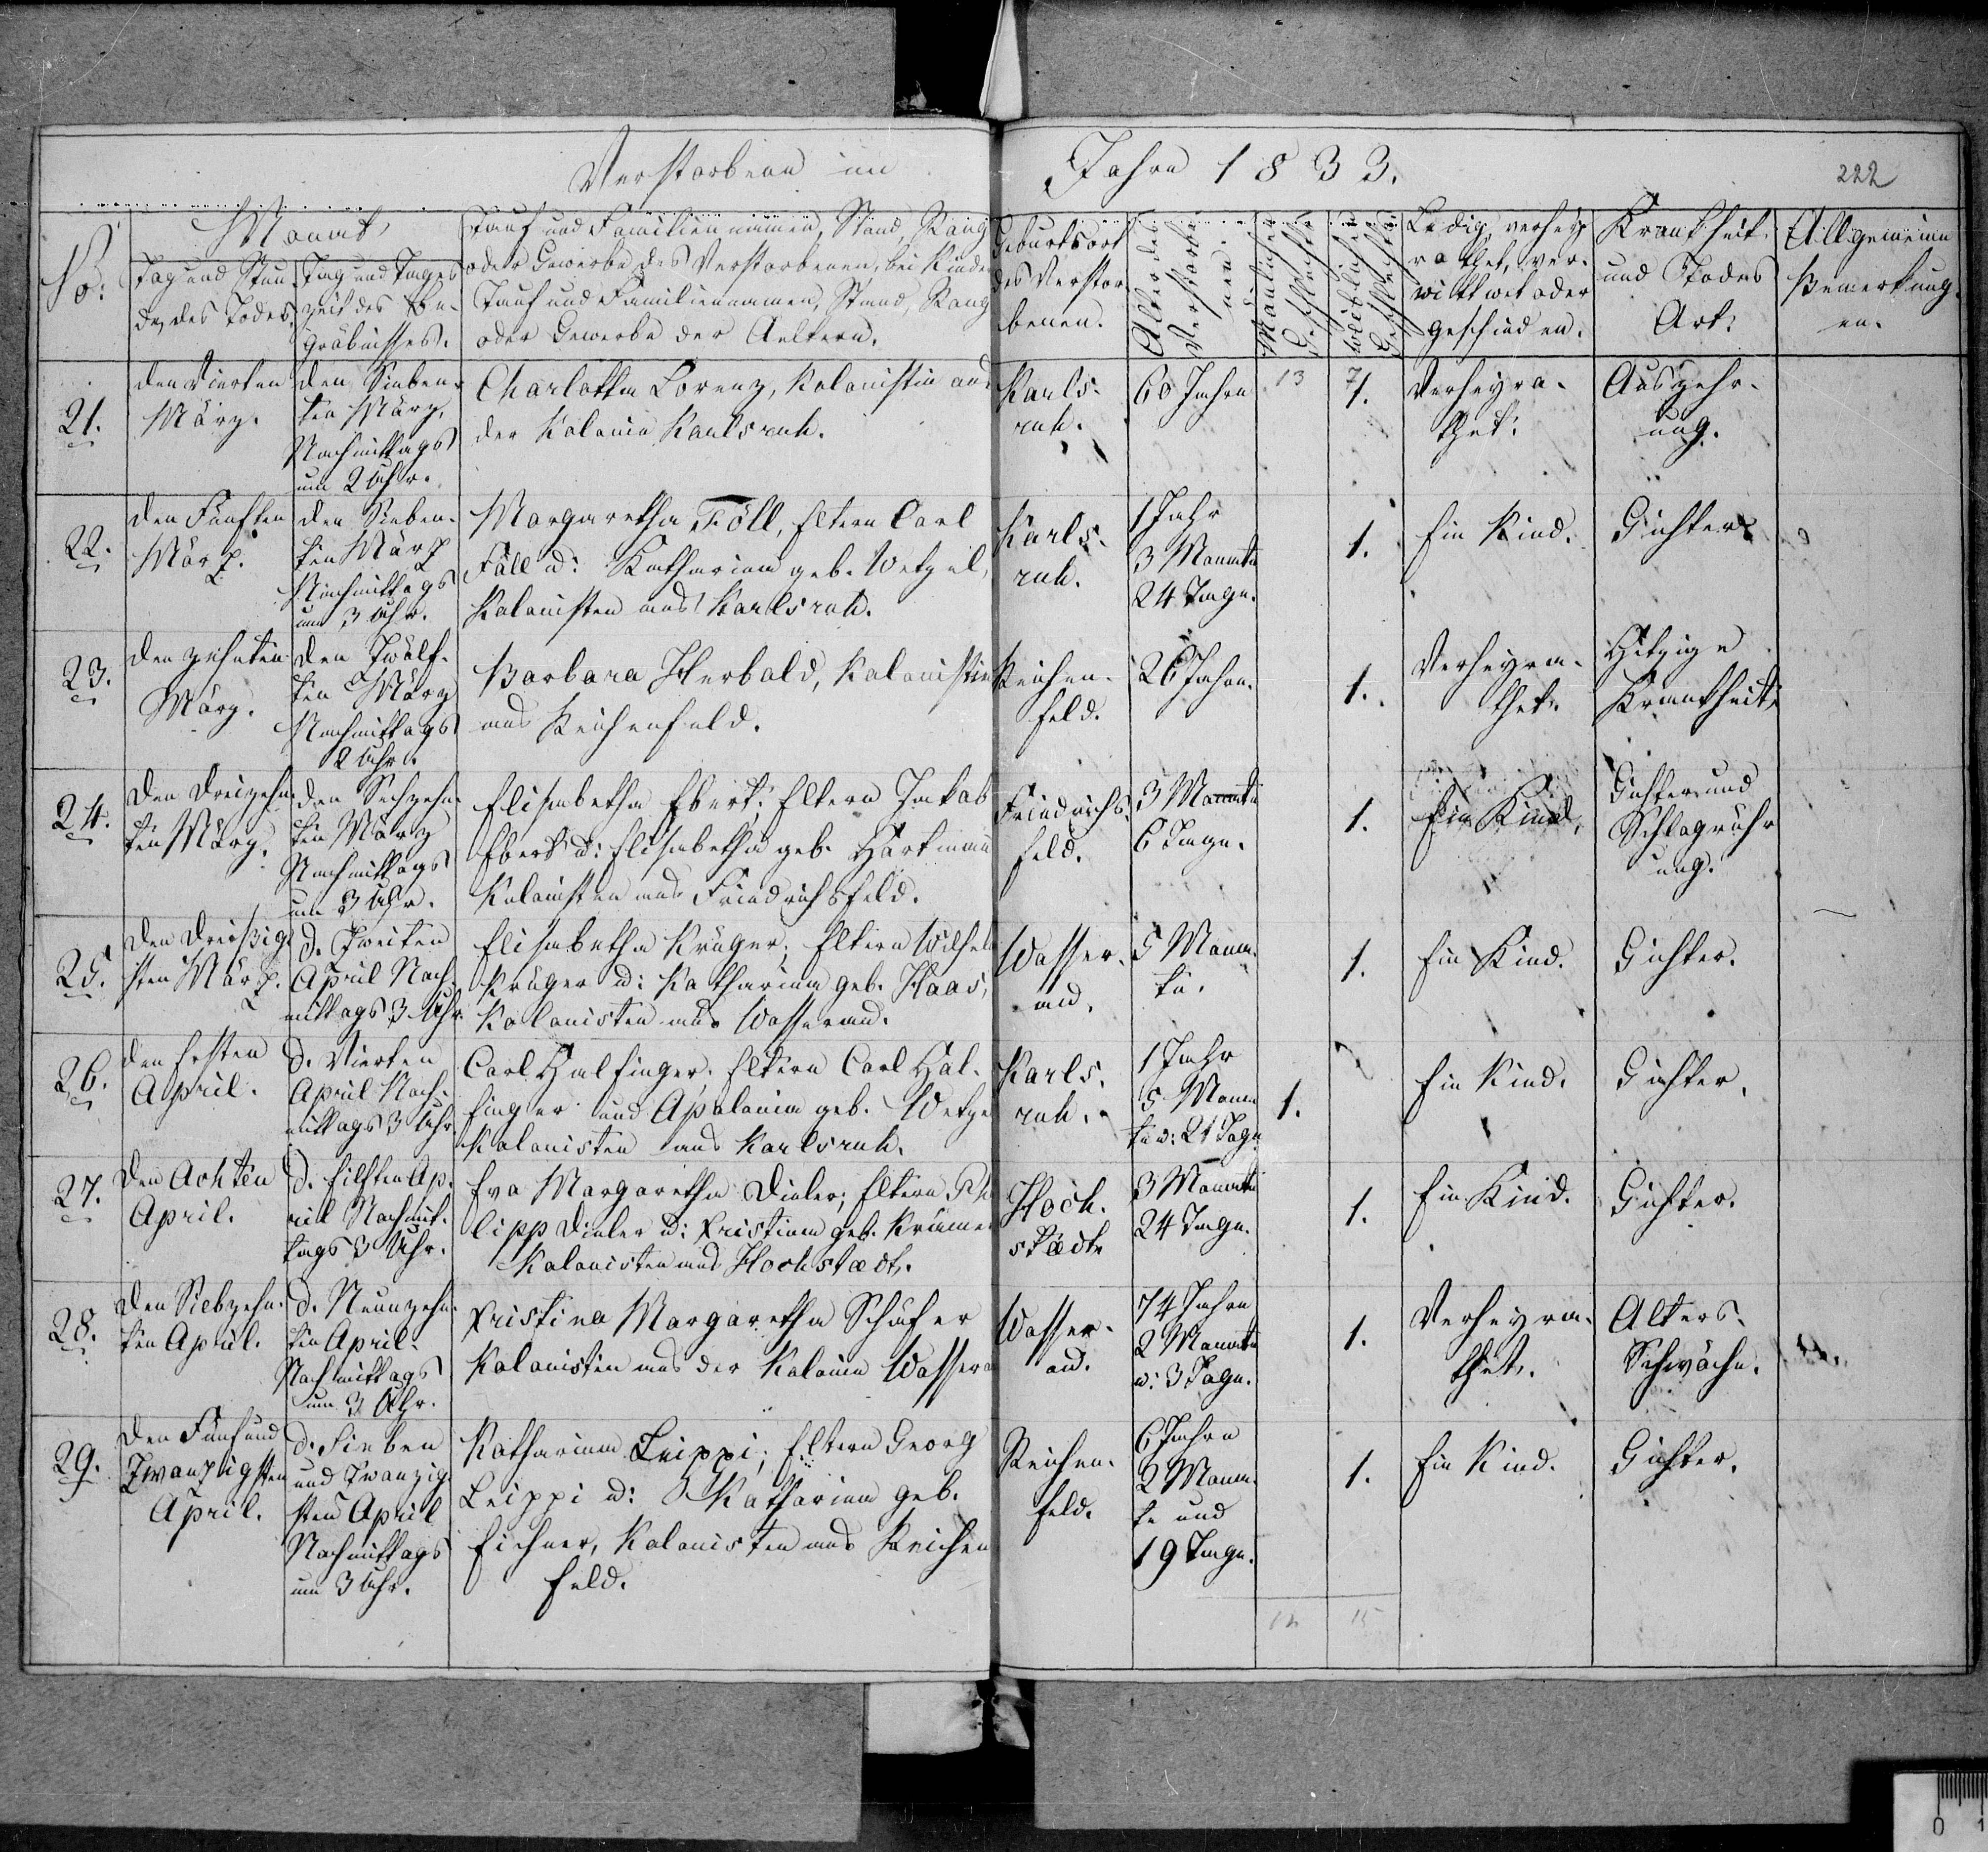 Verstorbene im Jahre 1833.
222
No:
Monat,
Tag und Stun-
de, des Todes.
Tag und Tages
zeit des Be-
gräbnisses.
Tauf und Familiennamen, Stand, Rang
oder Gewerbe des Verstorbenen, bei Kinder
Tauf und Familiennamen, Stand, Rang
oder Gewerbe der Aeltern.
Geburtsort
des Verstor-
benen.
Alter des
Verstorbe-
nen.
Mänlichen
Geschlechts
weiblichen
Geschlechts
Ledig, verhey
rathet, ver-
wittwet oder
geschieden.
Krankheit
und Todes
Art:
Allgemeine
Bemerkung-
en.
21.
den Vierten
März.
den Sieben-
ten März,
Nachmittags
um 2 Uhr.
Charlotta Lorenz, Kolonistin aus
der Kolonie Karlsruh.
Karls-
ruh.
60 Jahre
13
7
1.
Verheyra-
thet.
Auszehr-
ung.
22.
den Fünften
März.
den Sieben-
ten März
Nachmittags
um 3 Uhr.
Margaretha Föll, Eltern Carl
Föll u: Katharina geb. Wetzel,
Kolonisten aus Karlsruh.
Karls-
ruh.
1 Jahr
3 Monate
24 Tage.
1.
Ein Kind.
Gichter
23.
den zehnten
März.
den Zwölf-
ten März
Nachmittags
2 Uhr.
Barbara Herbold, Kolonistin
aus Reichenfeld.
Reichen-
feld.
26 Jahre.
1.
Verheyra-
thet.
Hitzige
Krankheit.
24.
den Dreizehn-
ten März.
den Sechzehn-
ten März
Nachmittags
um 3 Uhr.
Elisabetha Ebert; Eltern Jakob
Ebert u: Elisabetha geb. Hartmann
Kolonisten aus Friedrichsfeld.
Friedrichs-
feld.
3 Monate
6 Tage.
1.
Ein Kind.
Gichter und
Schlagrühr
ung.
25.
den Dreißig-
sten März.
d. Zweiten
April Nach-
mittags 3 Uhr.
Elisabetha Krüger; Eltern Wilhel
Krüger u: Katharina geb. Haas,
Kolonisten aus Wasserau.
Wasser-
au.
5 Mona-
te.
1.
Ein Kind.
Gichter.
26.
den Ersten
April.
d. Vierten
April Nach-
mittags 3 Uhr
Carl Halfinger. Eltern Carl Hal-
finger und Apolonia geb. Wetze
Kolonisten aus Karlsruh.
Karls-
ruh.
1 Jahr
5 Mona
te u: 21 Tage
1.
Ein Kind.
Gichter.
27.
den Achten
April.
d. Eilften Ap-
ril Nachmit-
tags 3 Uhr.
Eva Margaretha Dieler; Eltern Phi
lipp Dieler u: Kristiana geb. Krämer
Kolonisten aus Hochstædt.
Hoch-
stædt.
3 Monate
24 Tage.
1.
Ein Kind.
Gichter.
28.
den Siebzehn-
ten April.
d. Neunzehn-
ten April.
Nachmittags
um 3 Uhr.
Kristina Margaretha Schäfer
Kolonisten aus der Kolonie Wassera
Wasser-
au.
74 Jahre
2 Monate
u: 3 Tage.
1.
Verheyra-
thet.
Alters-
Schwäche.
29.
den Fünf und
Zwanzigsten
April.
d. Sieben
und Zwanzig-
sten April
Nachmittags
um 3 Uhr.
Katharina Leippi; Eltern Georg
Leippi u: Katharina geb.
Eichner, Kolonisten aus Reichen
feld.
Reichen-
feld.
6 Jahre
2 Mona-
te und
19 Tage.
1.
Ein Kind.
Gichter.
14
15
0 1